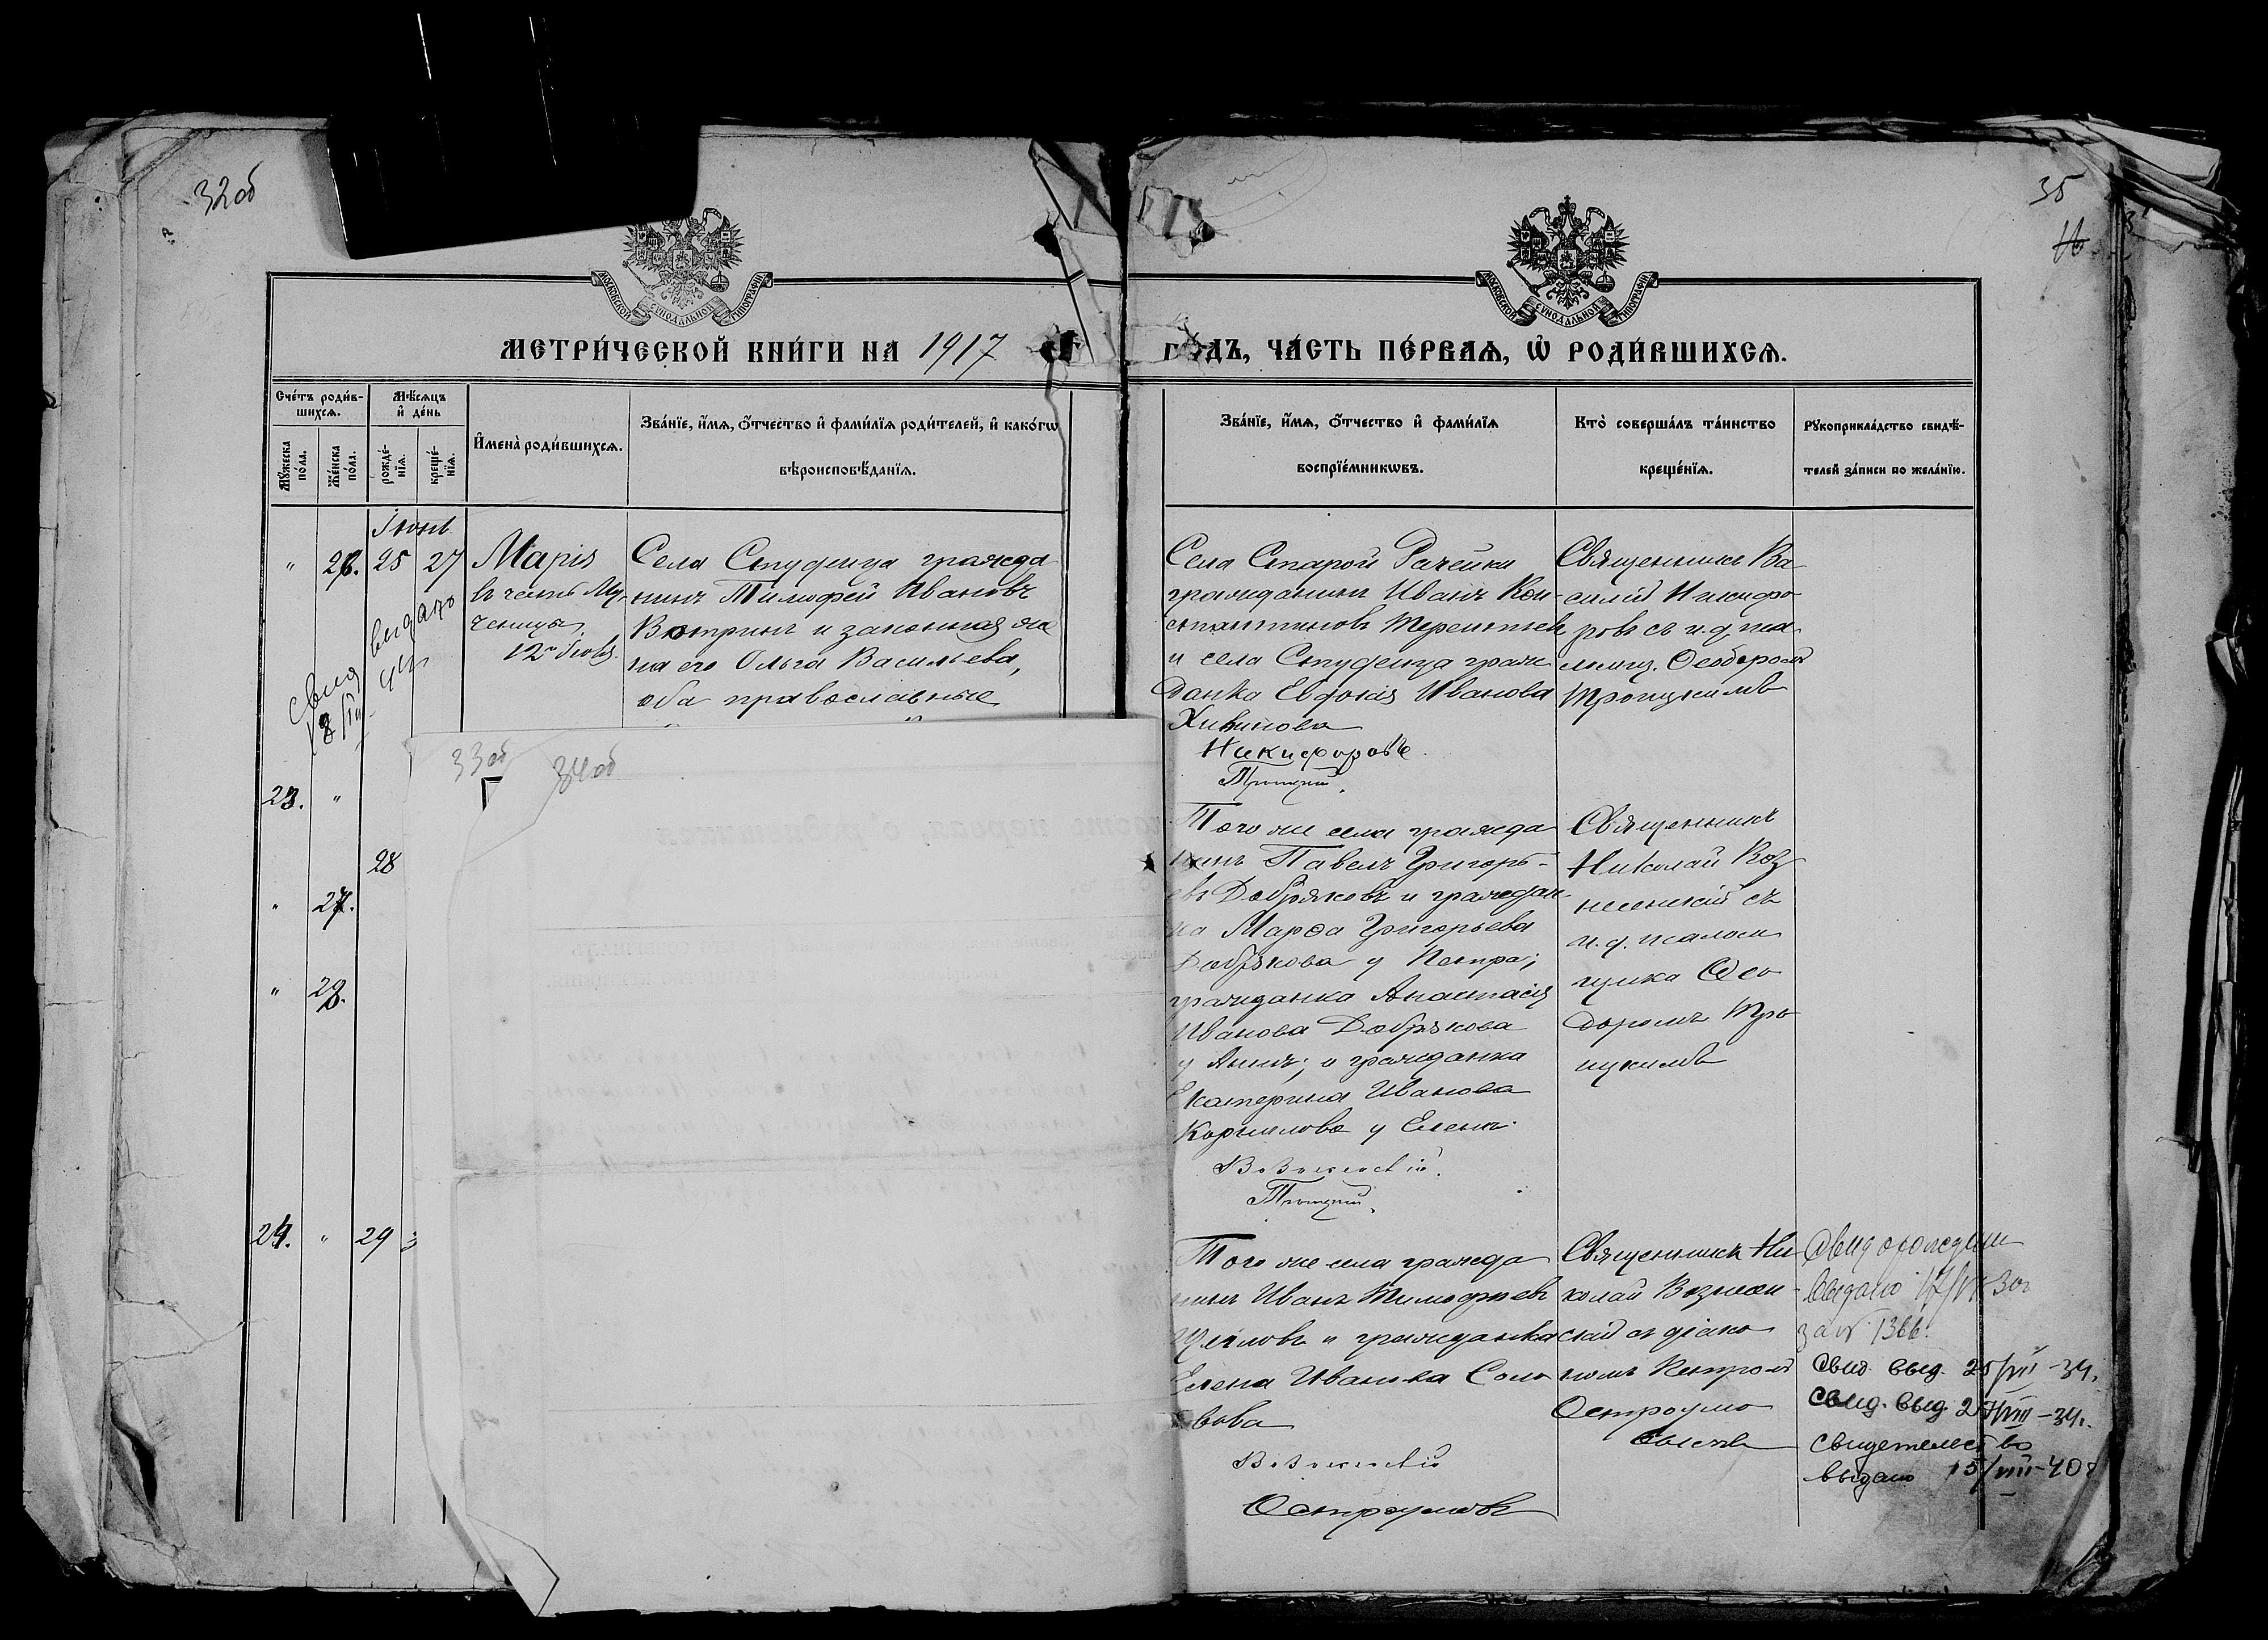 32об
35
МОСКОВСКОЙ СѴНОДАЛЬНОЙ ТИПОГРАФІИ
МОСКОВСКОЙ СѴНОДАЛЬНОЙ ТИПОГРАФІИ
МЕТРИ́ЧЕСКОЙ КНИ́ГИ НА 1917
ГО́ДЪ, ЧА́СТЬ ПЕ́РВАѦ, Ѡ҆ РОДИ́ВШИХСѦ.
Сче́тъ роди́в-
шихсѧ.
Мѣ́сѧцъ
и҆ де́нь
Мꙋ́жеска
по́ла.
Же́нска
по́ла.
рожде́-
нїѧ.
креще́-
нїѧ.
И҆мена̀ роди́вшихсѧ.
Зва́нїе, и҆́мѧ, ѻ҆́тчество и҆ фами́лїѧ роди́телей, и҆ како́гѡ
вѣроисповѣ́данїѧ.
Зва́нїе, и҆́мѧ, ѻ҆́тчество и҆ фами́лїѧ
воспрїе́мникѡвъ.
Кто̀ соверша́лъ та́инство
креще́нїѧ.
Рꙋкоприкла́дство свидѣ́-
телей за́писи по жела́нїю.
Іюнь
" 26. 25 27
Марія
въ честь Му-
ченицы
12го Іюля.
Села Студенца гражда
нинъ Тимофей Ивановъ
Вотринъ и законная же
на его Ольга Васильева,
оба православные
Села Старой Рачейки
гражданинъ Иванъ Кон-
стантиновъ Терентьевъ
и села Студенца граж
данка Евдокія Иванова
Хивинова
Никифоровъ.
Троицкій.
Священникъ Ва-
силій Никифо
ровъ съ и.д. пса
ломщ. Ѳеодоромъ
Троицкимъ
свид выдано
33об
34об
23. "
28
" 27.
" 28.
Того же села гражда
нинъ Павелъ Григорь-
евъ Добряковъ и граждан
ка Марѳа Григорьева
Добрякова у Петра;
гражданка Анастасія
Иванова Добрякова
у Анны; и гражданка
Екатерина Иванова
Корнилова у Елены.
Вознесенскій.
Троицкій.
Священникъ
Николай Воз
несенскій съ
и.д. псалом
щика Ѳео
доромъ Тро
ицкимъ
24. " 29
Того же села гражда
нинъ Иванъ Тимофеевъ
и гражданка
Елена Иванова Соло
вова
Вознесенскій
Остроумовъ
Священникъ Ни
колай Вознесен-
скій съ діако
номъ Петромъ
Остроумо
вымъ
Свид о рождении
выдано
за № 1366.
Свид. выд. 25/VII-34.
Свид. выд. 2
свидетельство
выдано 15/VIII-40г